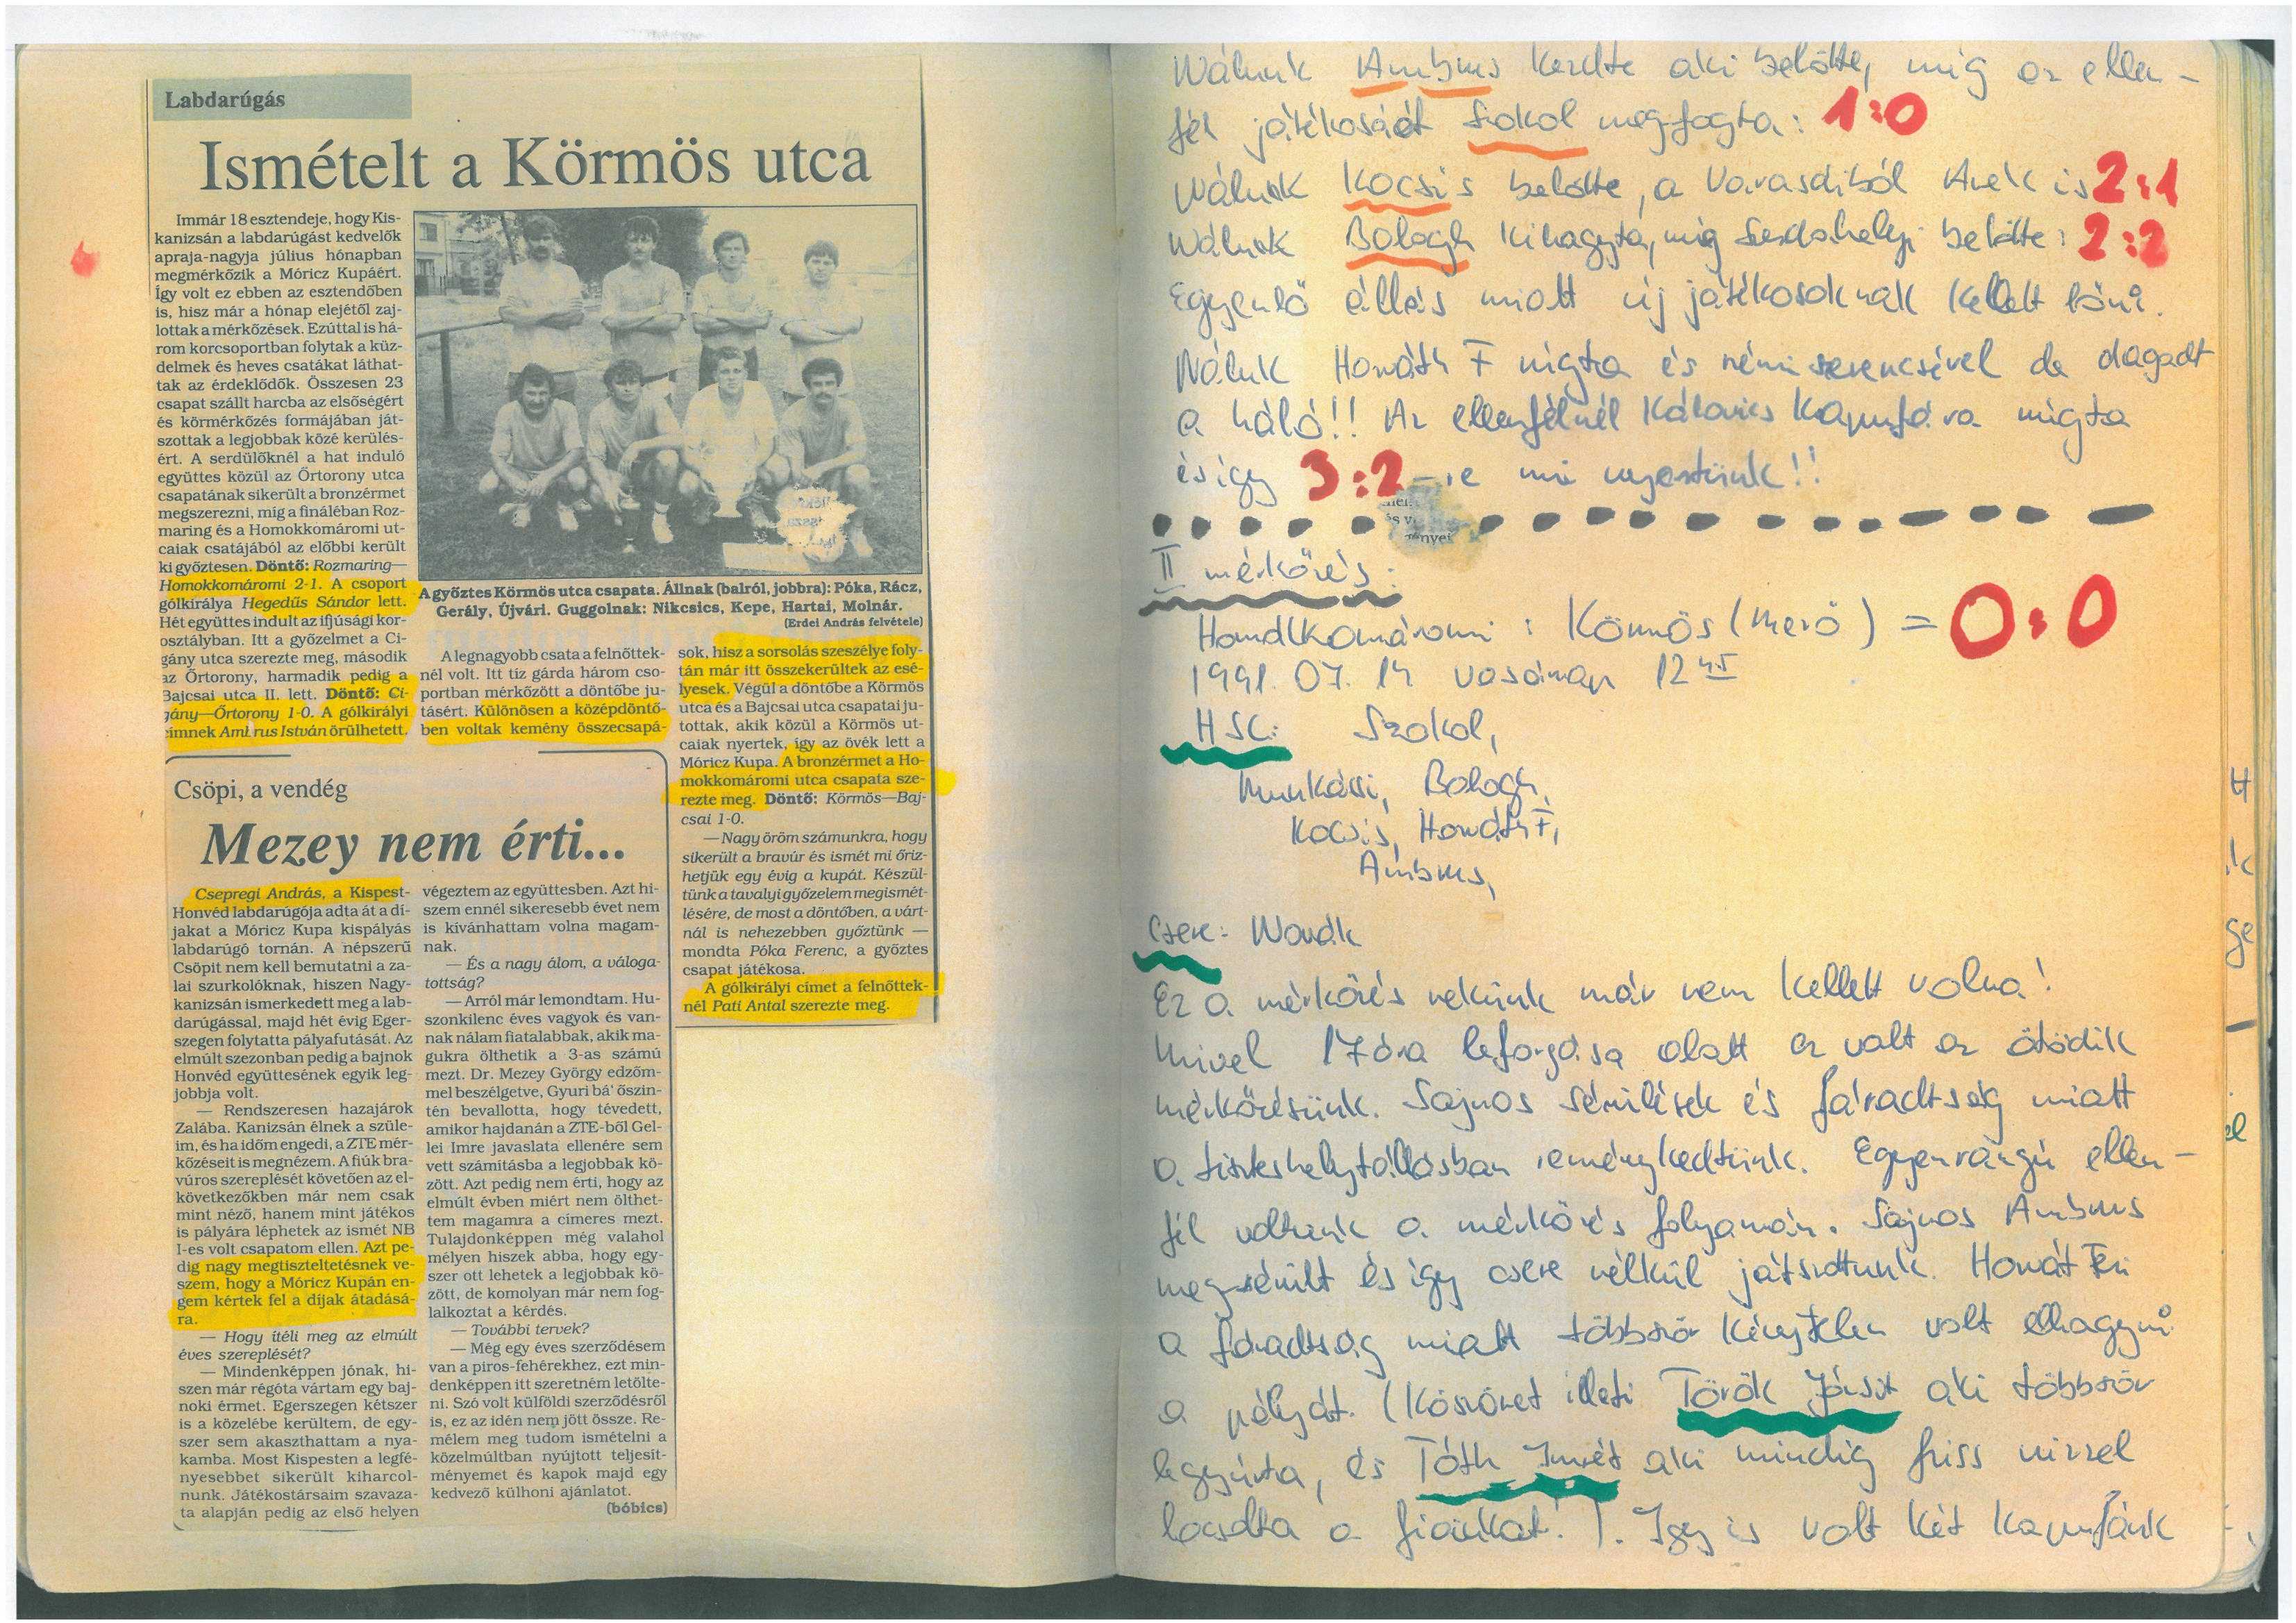 Labdarúgás
Ismételt a Körmös utca
Immár 18 esztendeje, hogy Kis-
kanizsán a labdarúgást kedvelők
apraja-nagyja július hónapban
megmérkőzik a Móricz Kupáért.
Így volt ez ebben az esztendőben
is, hisz már a hónap elejétől zaj-
lottak a mérkőzések. Ezúttal is há-
rom korcsoportban folytak a küz-
delmek és heves csatákat láthat-
tak az érdeklődők. Összesen 23
csapat szállt harcba az elsőségért
és körmérkőzés formájában ját-
szottak a legjobbak közé kerülés-
ért. A serdülőknél a hat induló
együttes közül az Őrtorony utca
csapatának sikerült a bronzérmet
megszerezni, míg a fináléban Roz-
maring és a Homokkomáromi ut-
caiak csatájából az előbbi került
ki győztesen. Döntő: Rozmaring—
Homokkomáromi 2-1. A csoport
gólkirálya Hegedűs Sándor lett.
Hét együttes indult az ifjúsági kor-
osztályban. Itt a győzelmet a Ci-
gány utca szerezte meg, második
az Őrtorony, harmadik pedig a
Bajcsai utca II. lett. Döntő: Ci-
gány—Őrtorony 1-0. A gólkirályi
címnek Ambrus István örülhetett.
A győztes Körmös utca csapata. Állnak (balról, jobbra): Póka, Rácz,
Gerály, Újvári. Guggolnak: Nikcsics, Kepe, Hartai, Molnár.
(Erdei András felvétele)
A legnagyobb csata a felnőttek-
nél volt. Itt tíz gárda három cso-
portban mérkőzött a döntőbe ju-
tásért. Különösen a középdöntő-
ben voltak kemény összecsapá-
sok, hisz a sorsolás szeszélye foly-
tán már itt összekerültek az esé-
lyesek. Végül a döntőbe a Körmös
utca és a Bajcsai utca csapatai ju-
tottak, akik közül a Körmös ut-
caiak nyertek, így az övék lett a
Móricz Kupa. A bronzérmet a Ho-
mokkomáromi utca csapata sze-
rezte meg. Döntő: Körmös—Baj-
csai 1-0.
—Nagy öröm számunkra, hogy
sikerült a bravúr és ismét mi őriz-
hetjük egy évig a kupát. Készül-
tünk a tavalyi győzelem megismét-
lésére, de most a döntőben, a várt-
nál is nehezebben győztünk —
mondta Póka Ferenc, a győztes
csapat játékosa.
A gólkirályi címet a felnőttek-
nél Pati Antal szerezte meg.
Csöpi, a vendég
Mezey nem érti...
Csepregi András, a Kispest-
Honvéd labdarúgója adta át a dí-
jakat a Móricz Kupa kispályás
labdarúgó tornán. A népszerű
Csöpit nem kell bemutatni a za-
lai szurkolóknak, hiszen Nagy-
kanizsán ismerkedett meg a lab-
darúgással, majd hét évig Eger-
szegen folytatta pályafutását. Az
elmúlt szezonban pedig a bajnok
Honvéd együttesének egyik leg-
jobbja volt.
— Rendszeresen hazajárok
Zalába. Kanizsán élnek a szüle-
im, és ha időm engedi, a ZTE mér-
kőzéseit is megnézem. A fiúk bra-
vúros szereplését követően az el-
következőkben már nem csak
mint néző, hanem mint játékos
is pályára léphetek az ismét NB
I-es volt csapatom ellen. Azt pe-
dig nagy megtiszteltetésnek ve-
szem, hogy a Móricz Kupán en-
gem kértek fel a díjak átadásá-
ra.
— Hogy ítéli meg az elmúlt
éves szereplését?
— Mindenképpen jónak, hi-
szen már régóta vártam egy baj-
noki érmet. Egerszegen kétszer
is a közelébe kerültem, de egy-
szer sem akaszthattam a nya-
kamba. Most Kispesten a legfé-
nyesebbet sikerült kiharcol-
nunk. Játékostársaim szavaza-
ta alapján pedig az első helyen
végeztem az együttesben. Azt hi-
szem ennél sikeresebb évet nem
is kívánhattam volna magam-
nak.
— És a nagy álom, a váloga-
tottság?
— Arról már lemondtam. Hu-
szonkilenc éves vagyok és van-
nak nálam fiatalabbak, akik ma-
gukra ölthetik a 3-as számú
mezt. Dr. Mezey György edzőm-
mel beszélgetve, Gyuri bá' őszin-
tén bevallotta, hogy tévedett,
amikor hajdanán a ZTE-ből Gel-
lei Imre javaslata ellenére sem
vett számításba a legjobbak kö-
zött. Azt pedig nem érti, hogy az
elmúlt évben miért nem ölthet-
tem magamra a címeres mezt.
Tulajdonképpen még valahol
mélyen hiszek abba, hogy egy-
szer ott lehetek a legjobbak kö-
zött, de komolyan már nem fog-
lalkoztat a kérdés.
— További tervek?
— Még egy éves szerződésem
van a piros-fehérekhez, ezt min-
denképpen itt szeretném letölte-
ni. Szó volt külföldi szerződésről
is, ez az idén nem jött össze. Re-
mélem meg tudom ismételni a
közelmúltban nyújtott teljesít-
ményemet és kapok majd egy
kedvező külhoni ajánlatot.
(bóbics)
Nálunk Ambrus kezdte aki belőtte, míg az ellen-
fél játékosáét Szokol megfogta: 1:0
Nálunk Kocsis belőtte, a Varasdiból is 2:1
Nálunk Balogh kihagyta, míg Serdahelyi belőtte: 2:2
Egyenlő állás miatt új játékosoknak kellett lőni.
Nálunk Horváth F rúgta és némi szerencsével de dagadt
a háló!! Az ellenfélnél Kálovics kapufára rúgta
és így 3:2-re mi nyertünk!!
II mérkőzés:
Homokkomáromi : Körmös (Merő) = 0:0
1991. 07. 14 vasárnap 12 45
HSC: Szokol,
Munkácsi, Balogh,
Kocsis, Horváth F,
Ambrus,
Csere: Novák
Ez a mérkőzés nekünk már nem kellett volna!
Mivel 17 óra leforgása alatt ez volt az ötödik
mérkőzésünk. Sajnos sérülések és fáradtság miatt
a tisztes helytállásban reménykedtünk. Egyenrangú ellen-
fél voltunk a mérkőzés folyamán. Sajnos Ambrus
megsérült és így csere nélkül játszottunk. Horvát Feri
a fáradtság miatt többször kénytelen volt elhagyni
a pályát. (Köszönet illeti Török Jócsit aki többször
legyúrta, és Tóth Imrét aki mindig friss vízzel
locsolta a fiúkat!). Így is volt két kapufánk